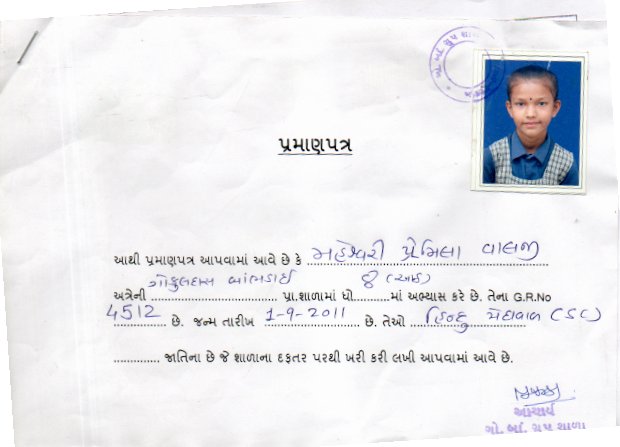 પ્રમાણપત્ર
આથી પ્રમાણપત્ર આપવામાં આવે છે કે મહેશ્વરી પ્રેમિલા વાલજી
ગોકુલદાસ બાંભડાઈ ૬
અત્રેની .................... પ્રા.શાળામાં ધો..........માં અભ્યાસ કરે છે. તેના G.R.No
4512 છે. જન્મ તારીખ 1-9-2011 છે. તેઓ હિન્દુ મેઘવાળ (SC)
............. જાતિના છે જે શાળાના દફતર પરથી ખરી કરી લખી આપવામાં આવે છે.
આચાર્ય
ગો. બાં. ગ્રુપ શાળા